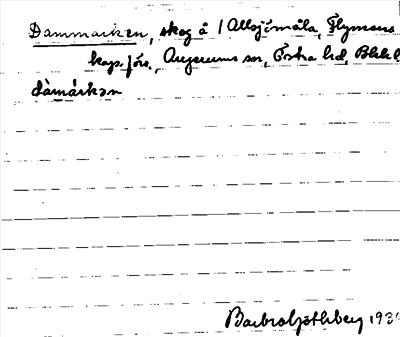 Dammarken, skog å 1 Allsjömåla, Flymens
kap. förs. Augerums sn, Östra hd, Blek
dàmárkən
Barbro Göthberg 193